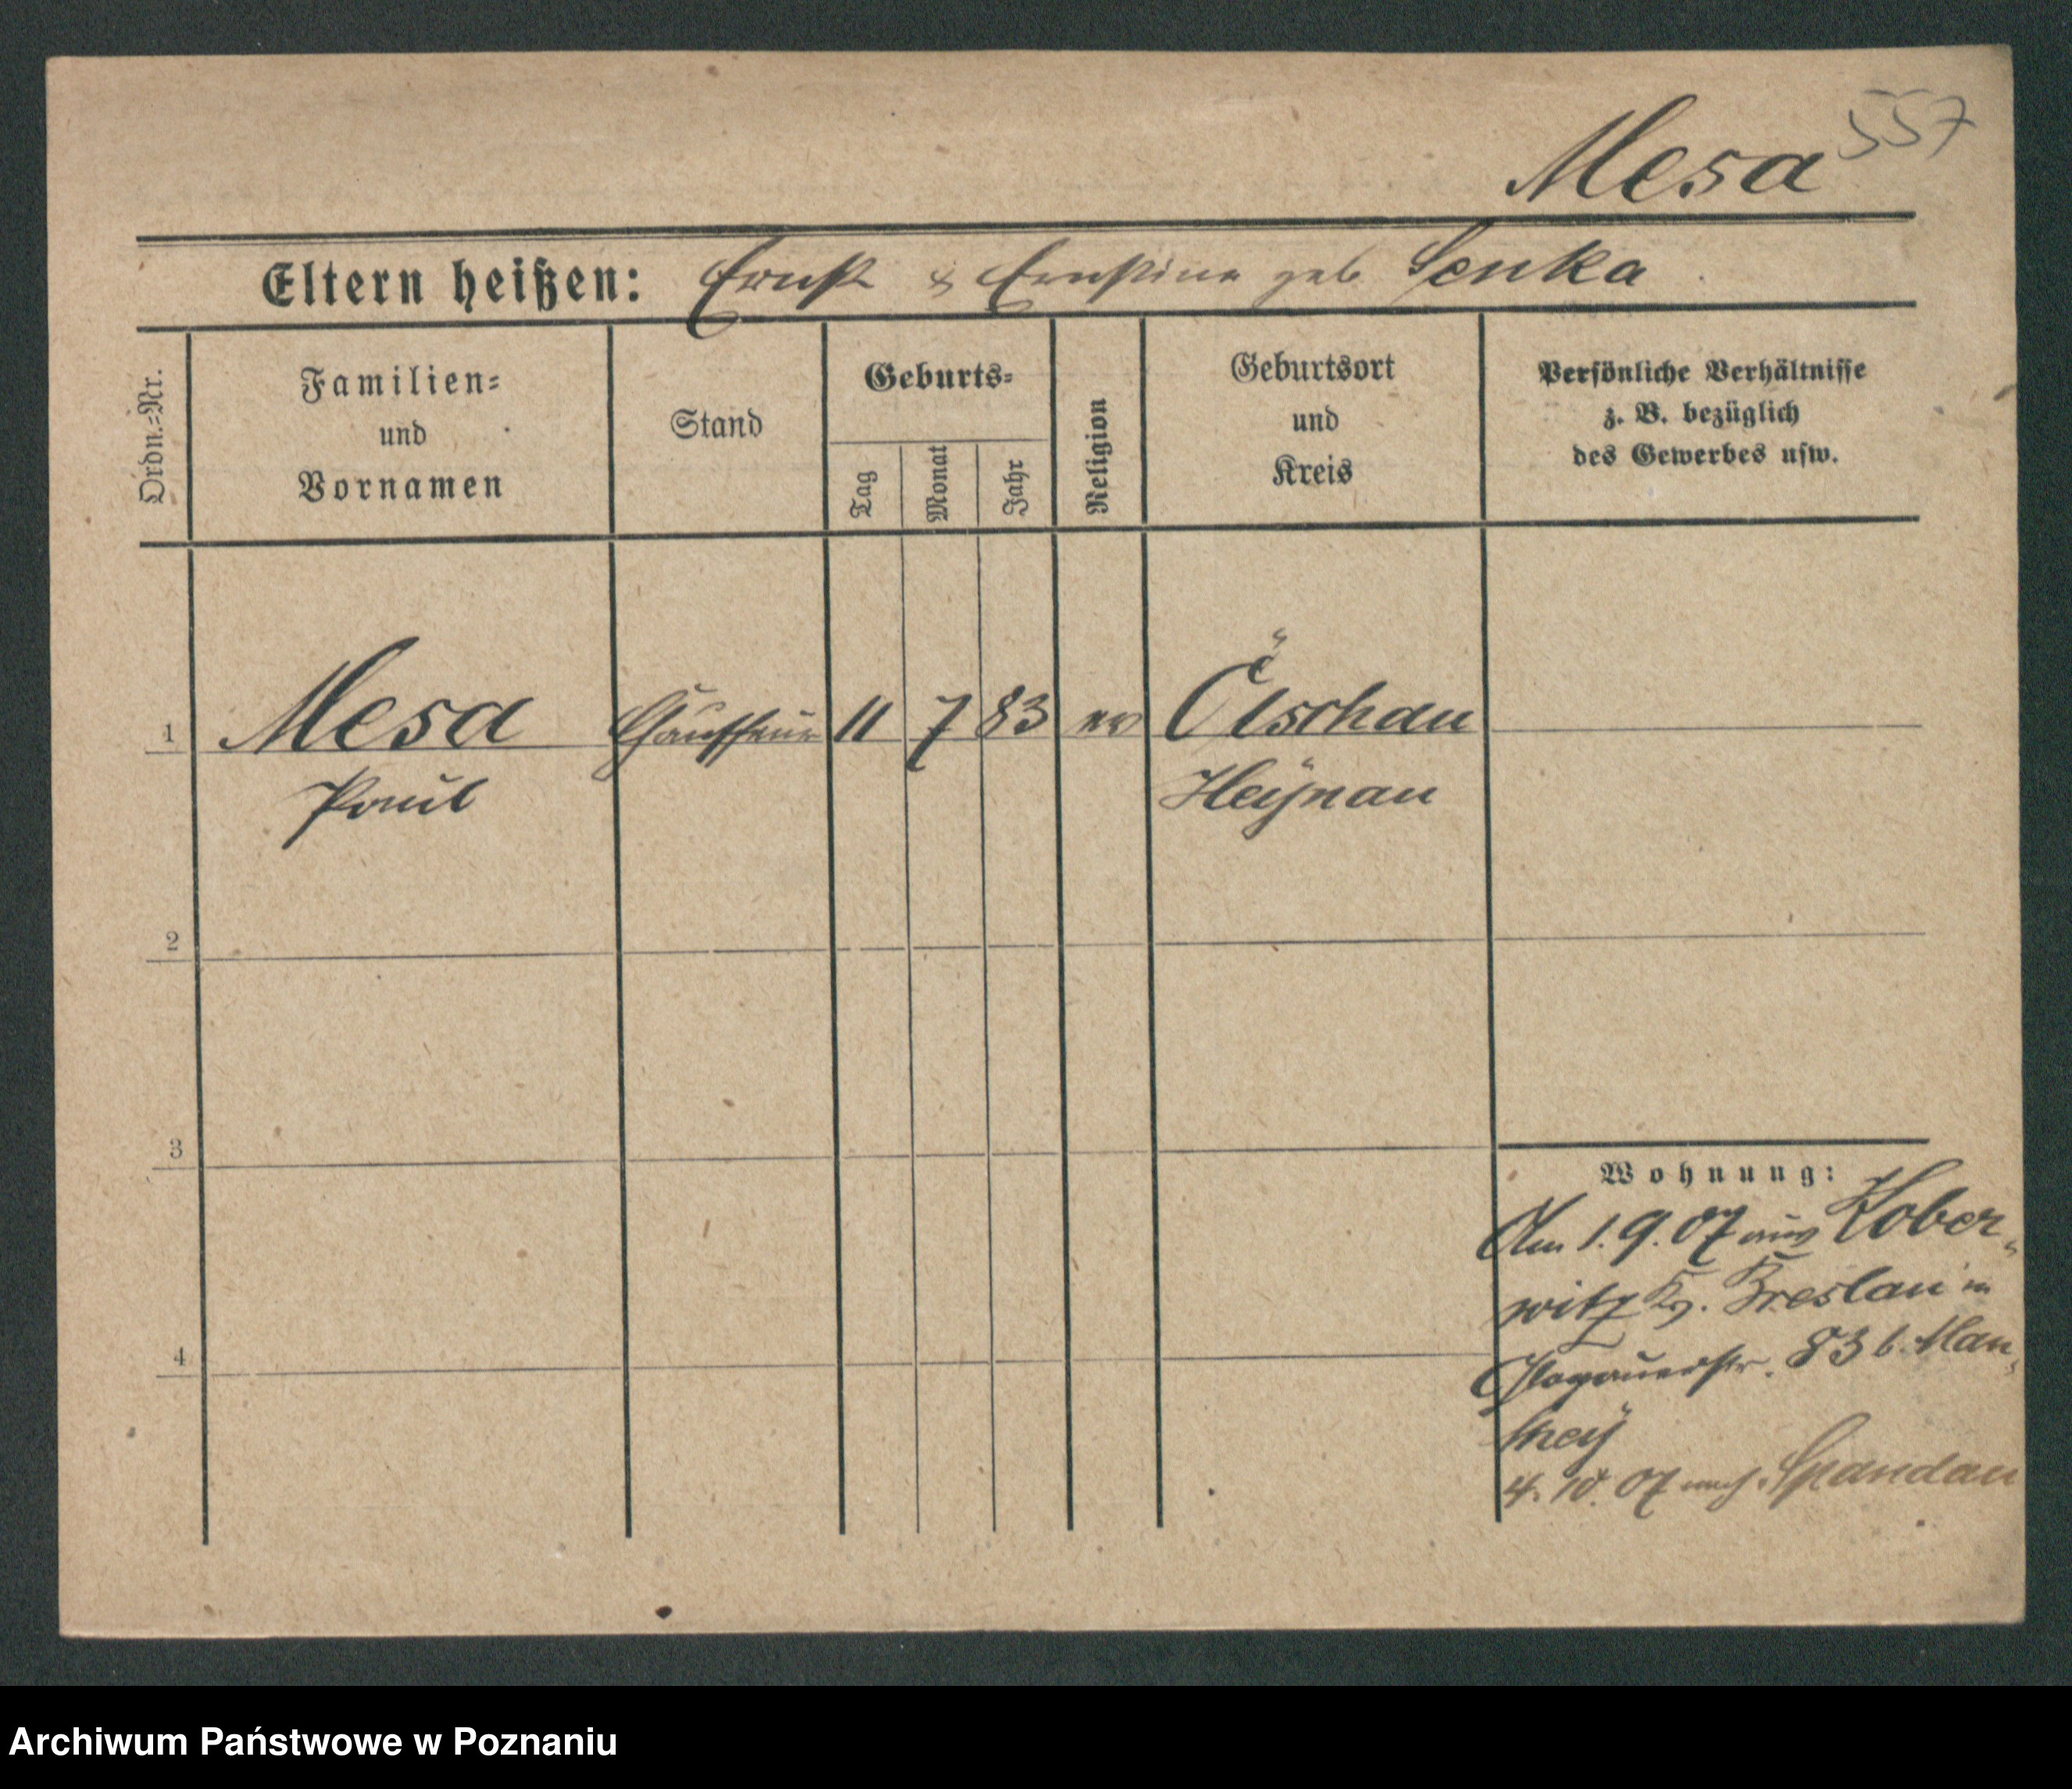 557
Mesa
Eltern heißen: Ernst & Ernstine geb Senka
Ordn.=Nr.
Familien=
und
Vornamen
Stand
Geburts=
Tag
Monat
Jahr
Religion
Geburtsort
und
Kreis
Persönliche Verhältnisse
z. B. bezüglich
des Gewerbes usw.
1 Mesa Chauffeur 11 7 83 ev
Paul
2
3
4
Wohnung:
Am 1.9.07 aus Kober-
witz Kr. Breslau in
Glogauerstr. 83 b.
4. 10. 07 nach Spandau
Archiwum Państwowe w Poznaniu